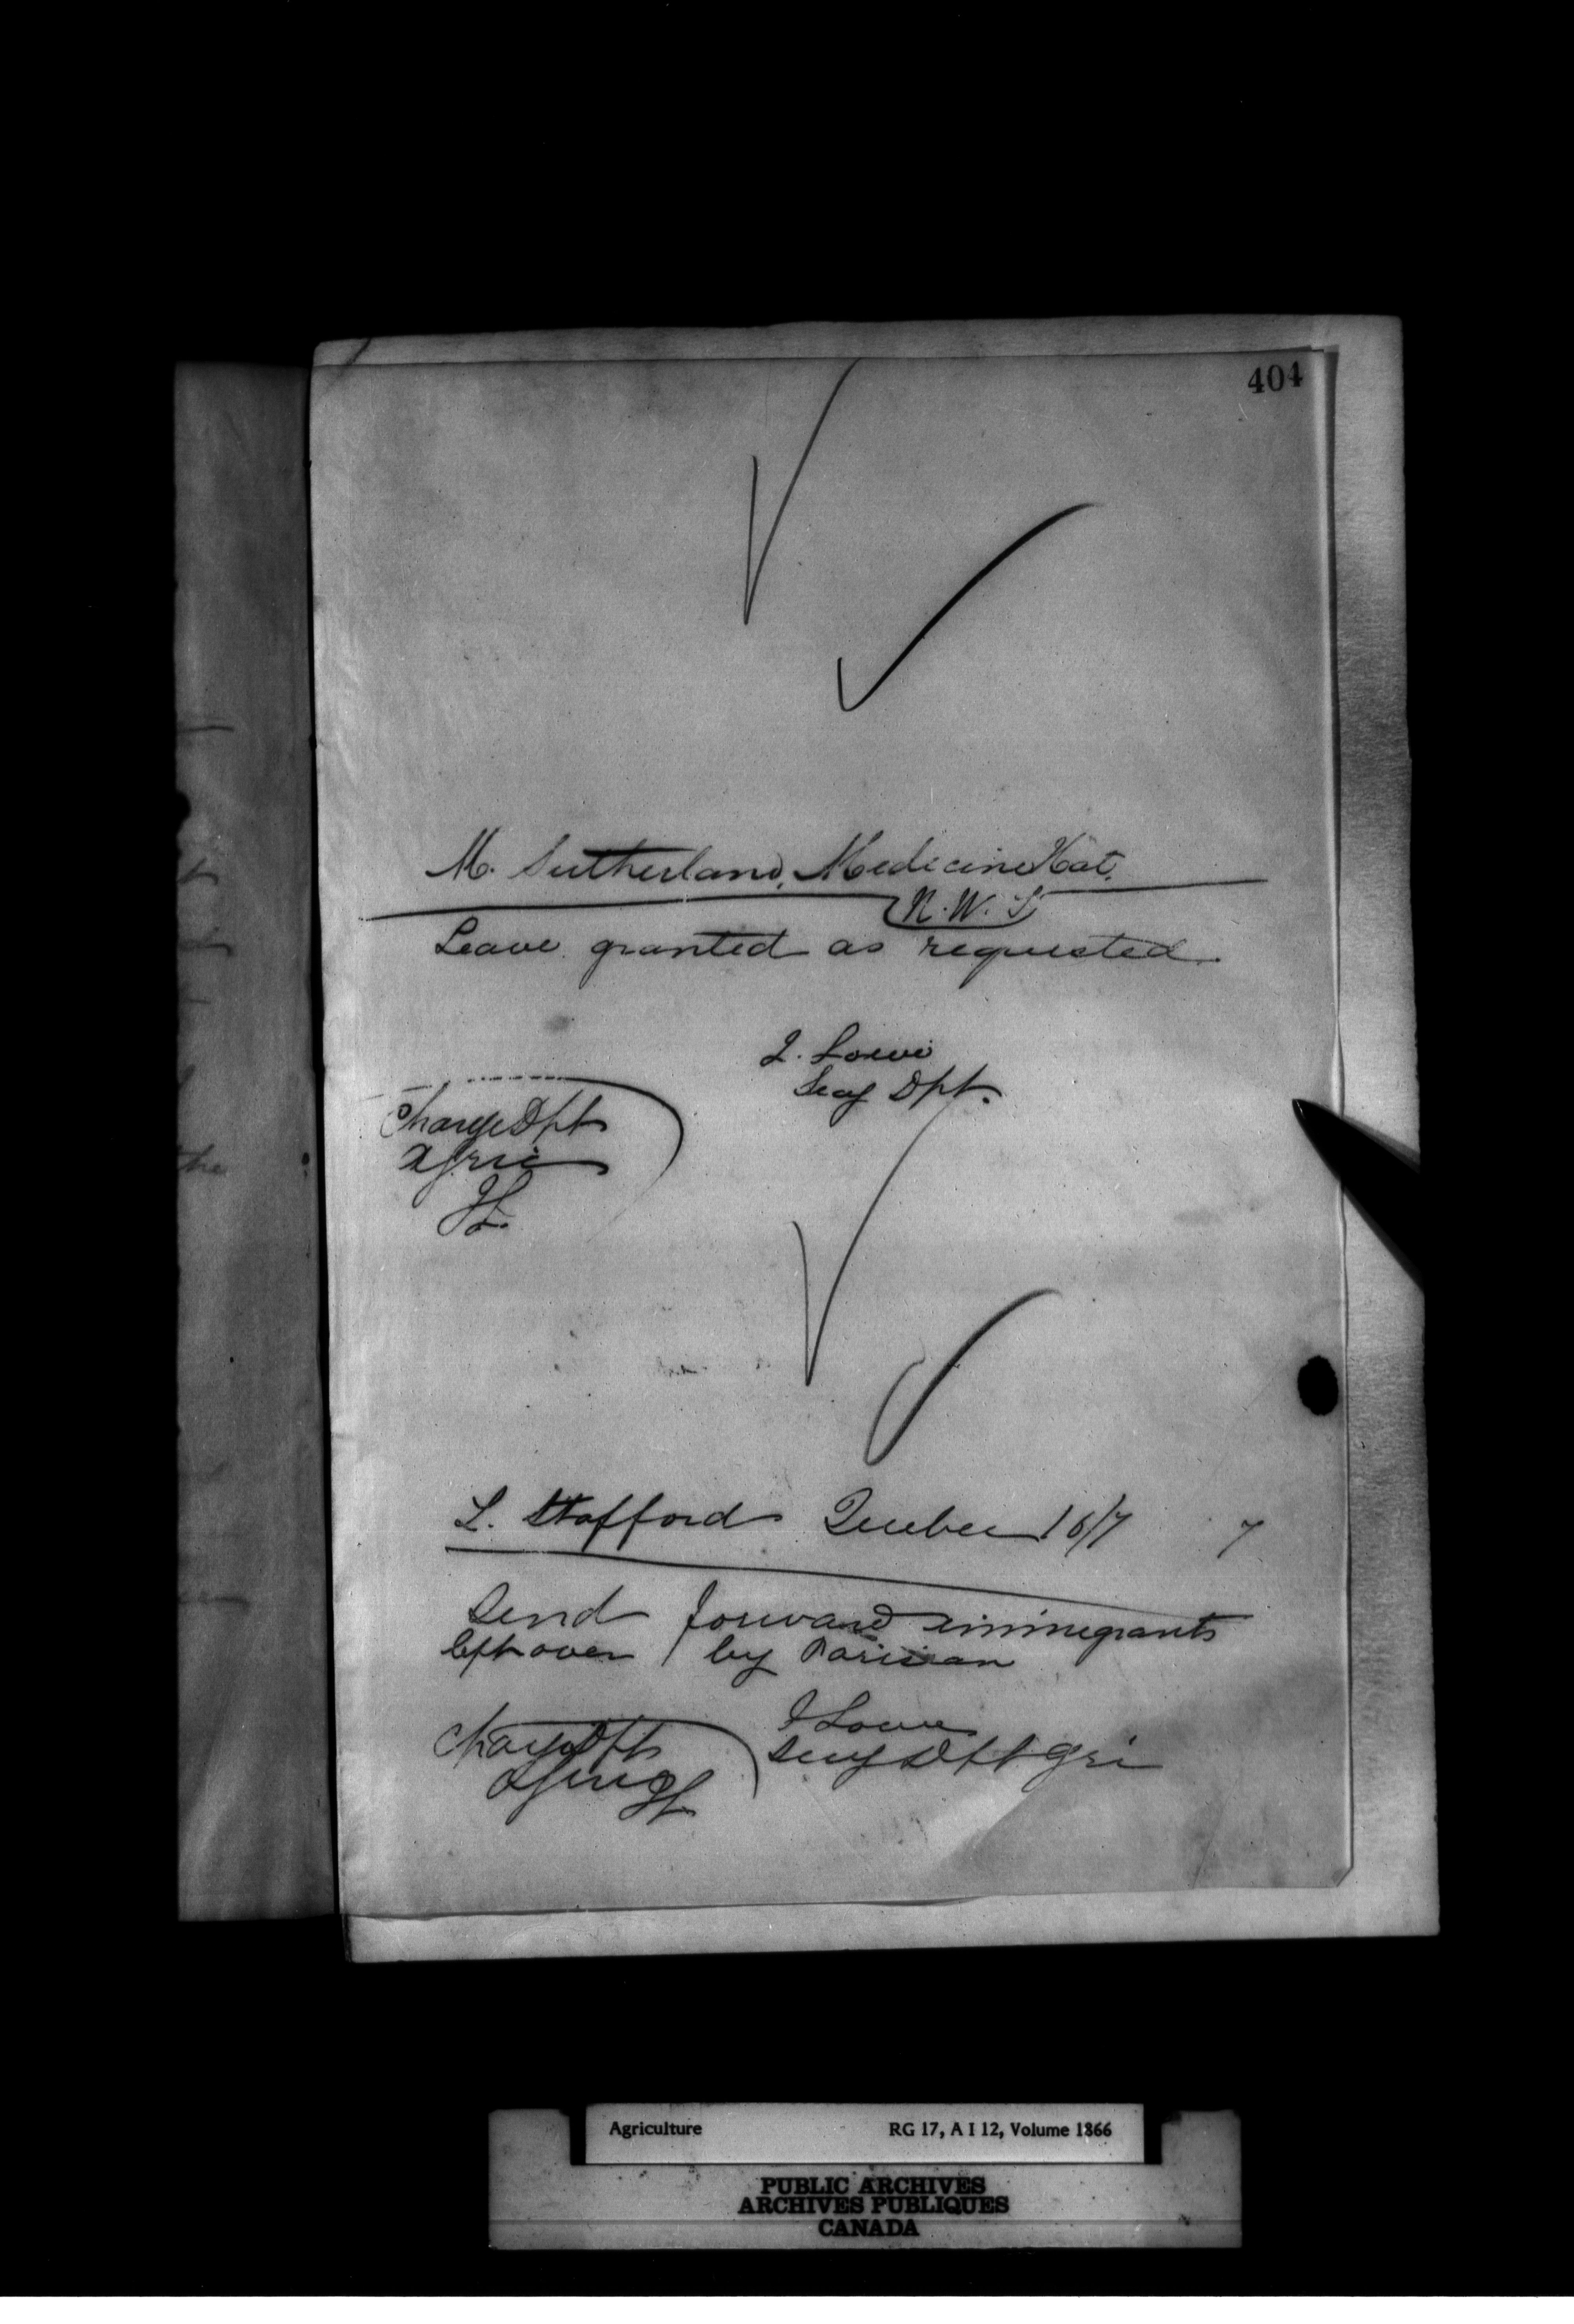 404
M. Sutherland, Medicine Hat.
N. W. T.
Leave granted as requested.
J. Lowe
Secy Dpt.
Charge Dpt
Agric
JL.
L. Stafford Quebec 16/7 7
Send forward immigrants
left over by Parisian
J Lowe
Secy Dpt Agri
Charge Dpt
Agric JL
the
Agriculture RG 17, A I 12, Volume 1866
PUBLIC ARCHIVES
ARCHIVES PUBLIQUES
CANADA